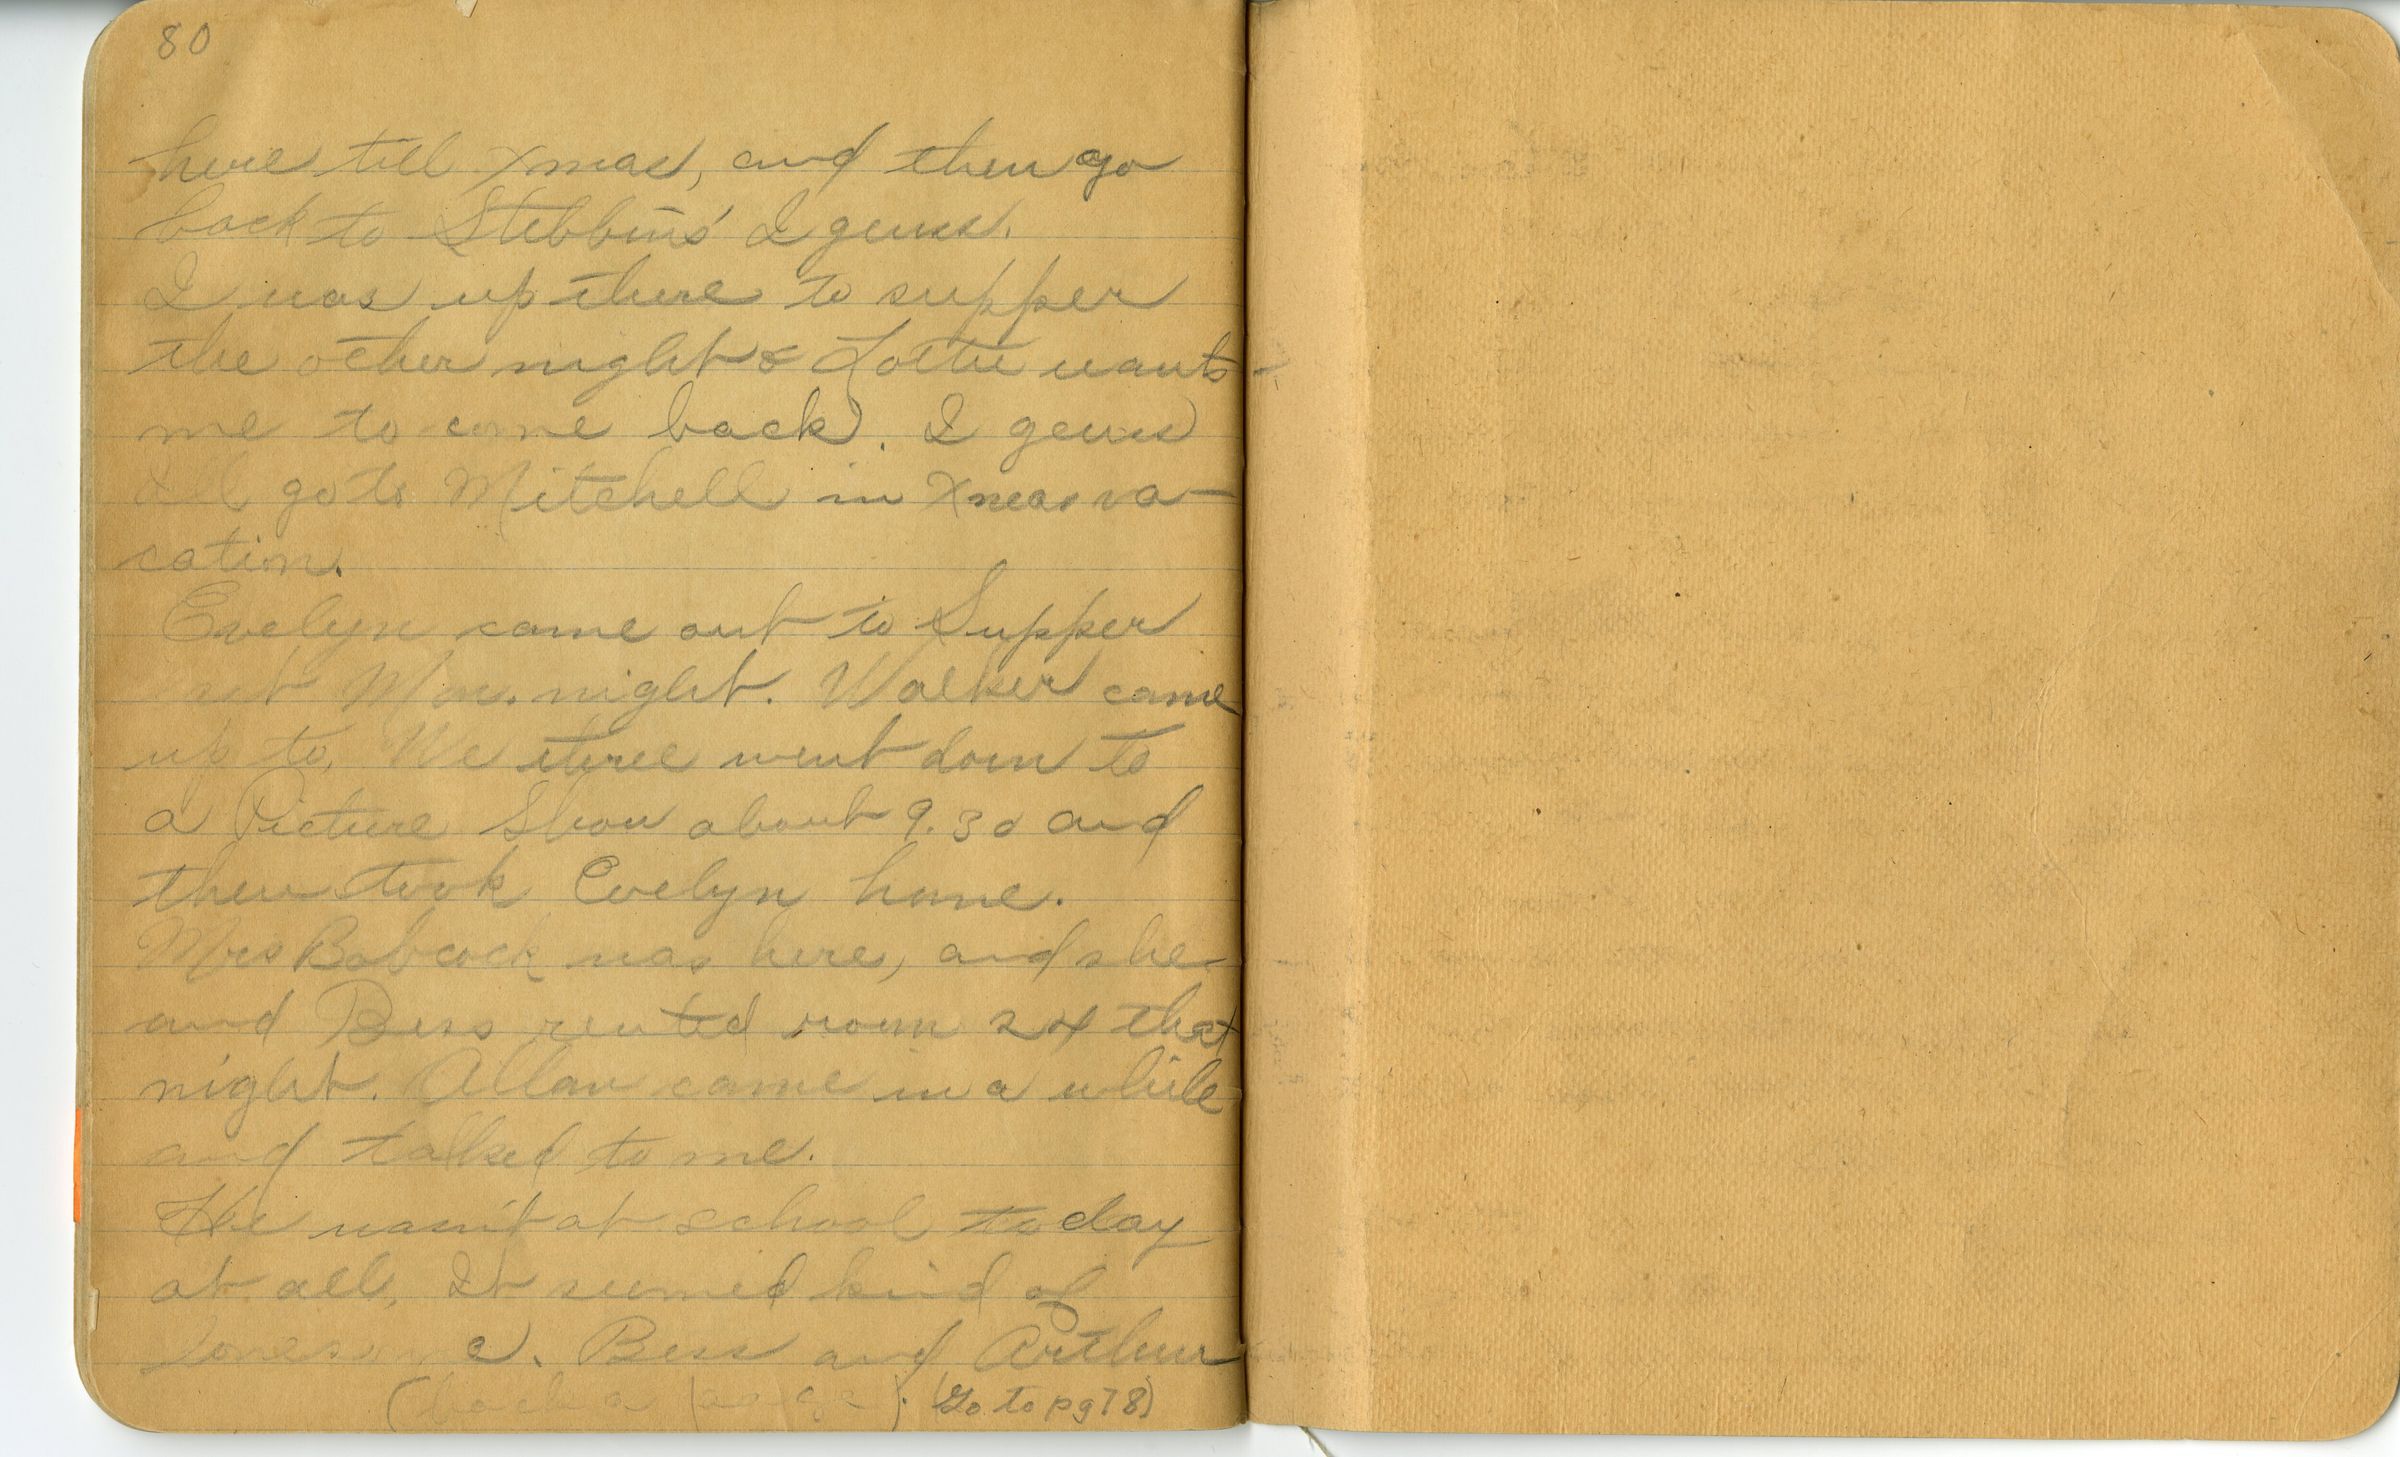 80
here till Xmas, and then go
back to Stebbins' I guess.
I was up there to supper
the other night & Lottie wants
me to come back. I guess
I'll go to Mitchell in Xmas va-
cation.
Evelyn came out to Supper
Mon. night. Walker came
up to. We three went down to
a Picture Show about 9.30 and
then took Evelyn home.
Mrs Babcock was here, and she
and Bess rented room 24 that
night. Allan came in a while
and talked to me.
He wasn't at school today
at all, It seemed kind of
lonesome. Bess and Arthur
(back a page). (Go to pg 78)